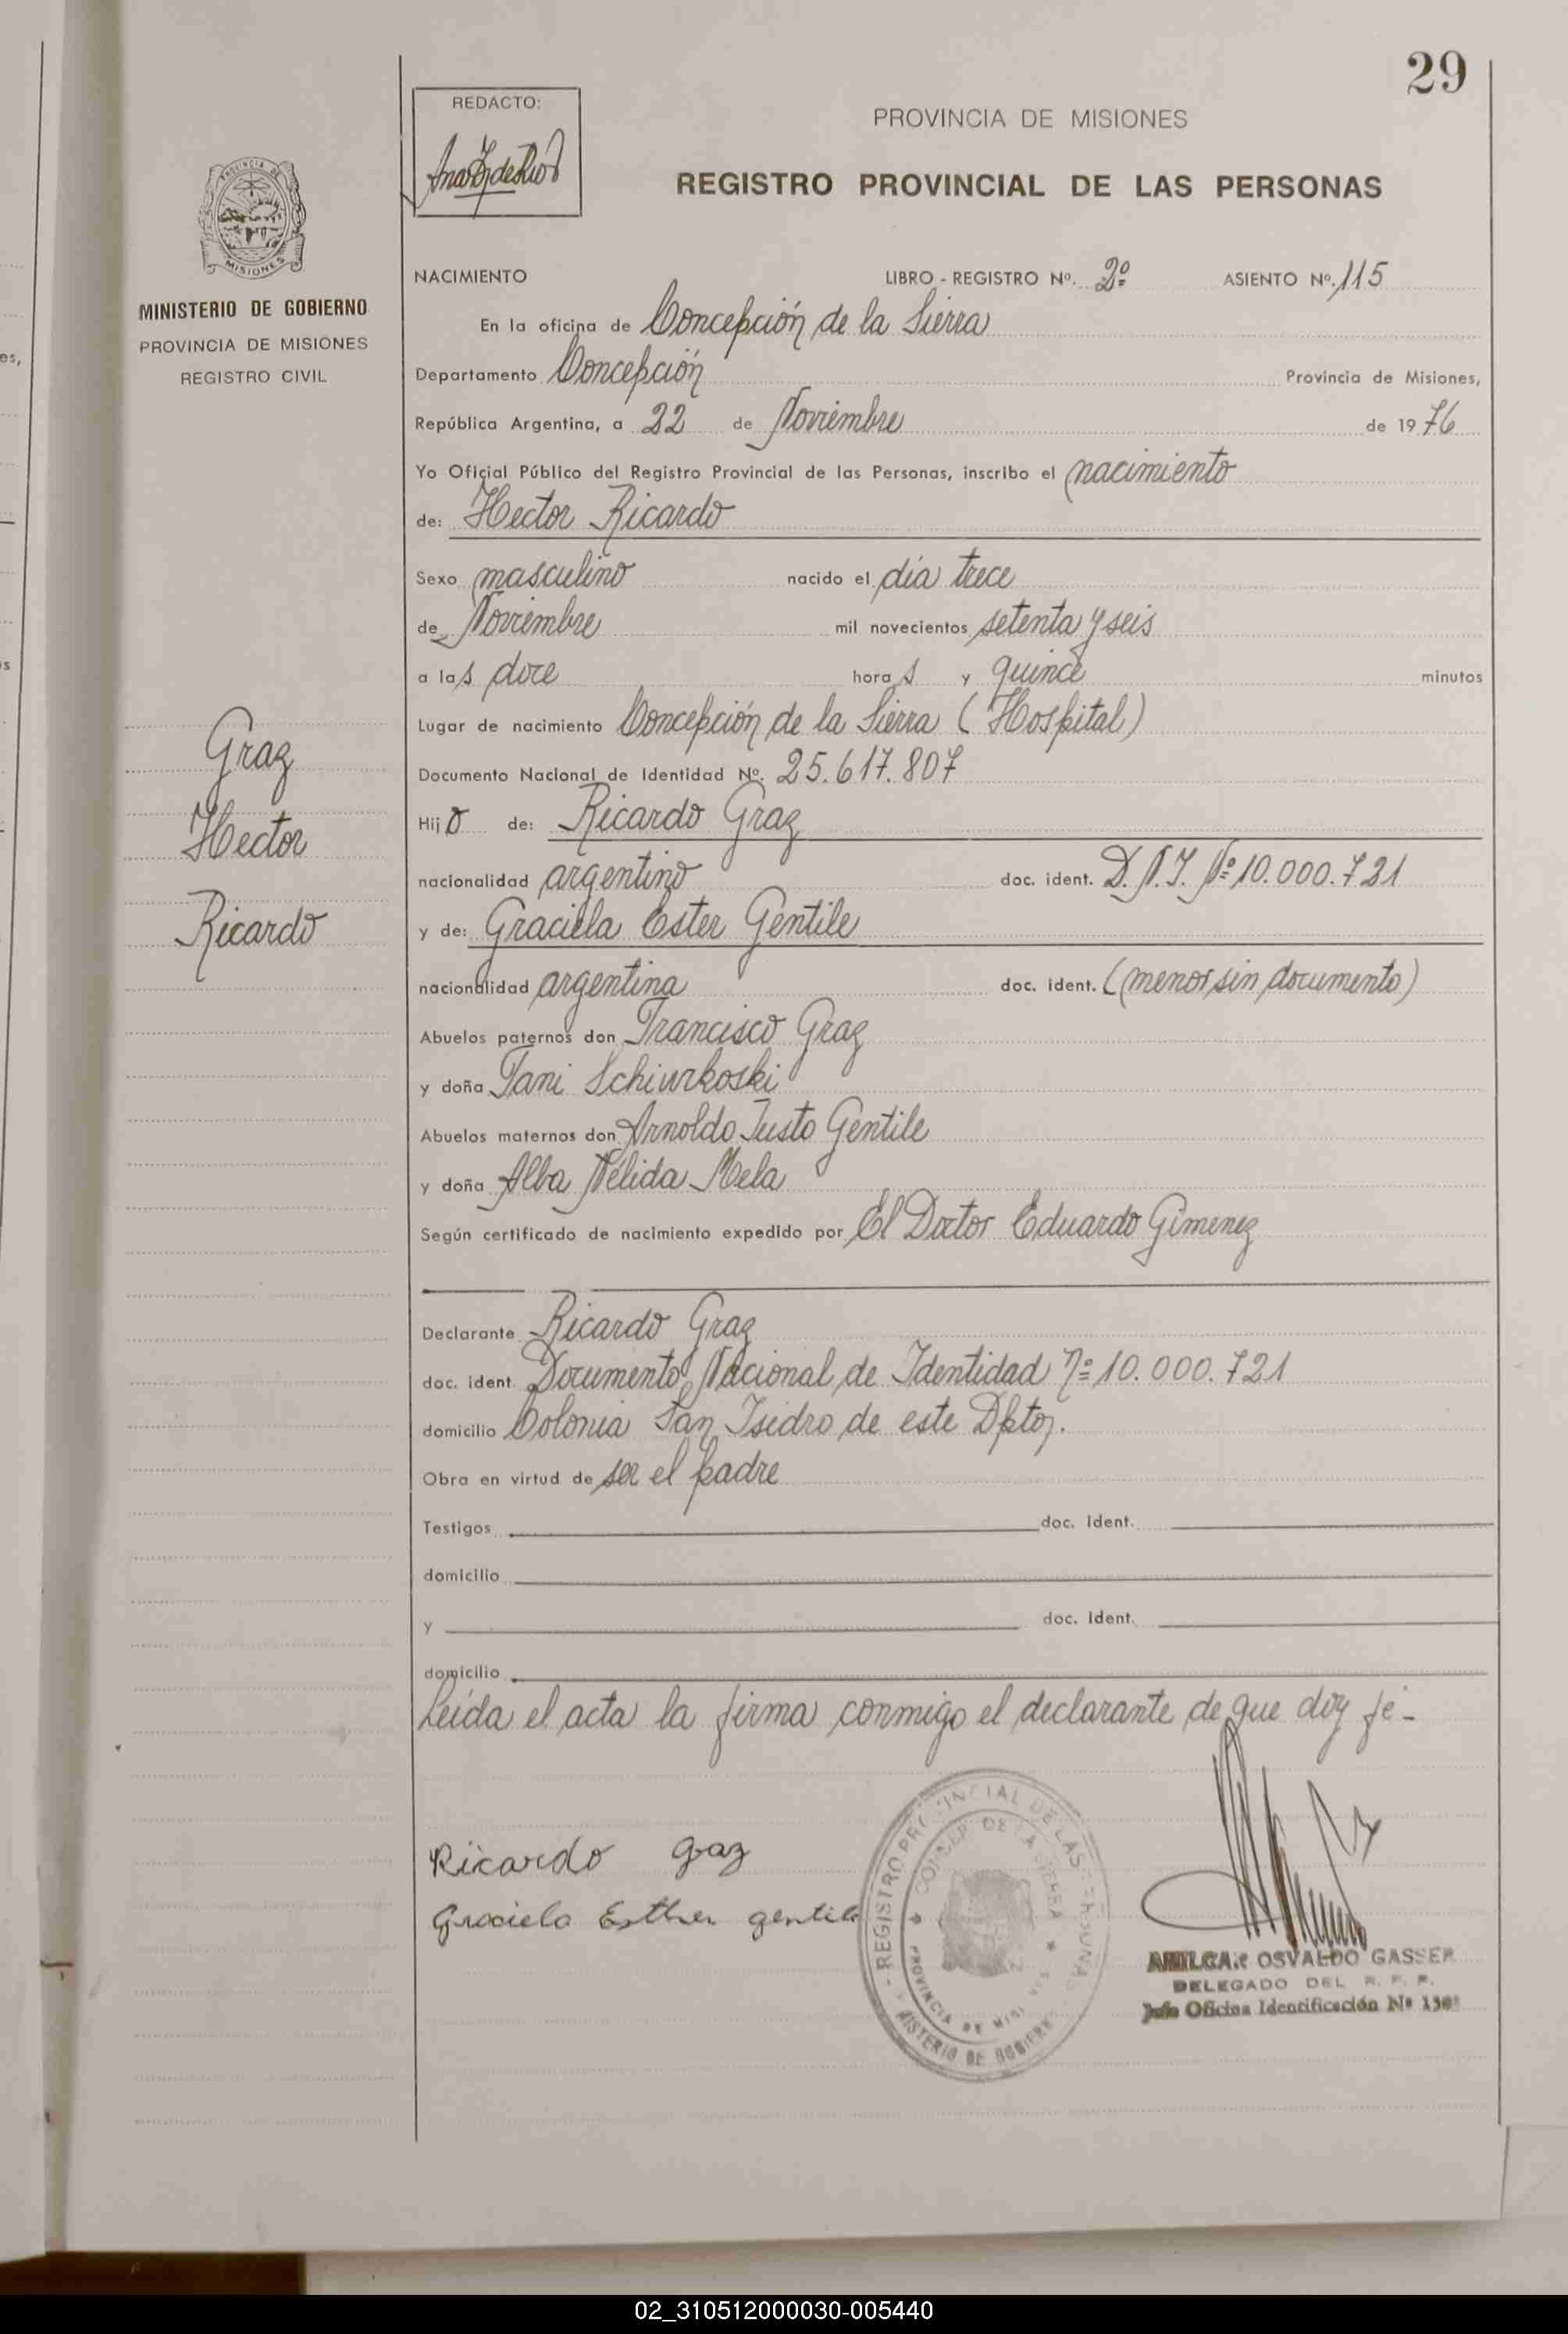 29
REDACTO:
PROVINCIA DE MISIONES
REGISTRO PROVINCIAL DE LAS PERSONAS
PROVINCIA DE
MISIONES
MINISTERIO DE GOBIERNO
PROVINCIA DE MISIONES
REGISTRO CIVIL
Graz
Hector
Ricardo
NACIMIENTO LIBRO - REGISTRO Nº. 2º ASIENTO Nº. 115
En la oficina de Concepción de la Sierra
Departamento Concepción Provincia de Misiones,
República Argentina, a 22 de Noviembre de 1976
Yo Oficial Público del Registro Provincial de las Personas, inscribo el nacimiento
de: Hector Ricardo
Sexo masculino nacido el día trece
de Noviembre mil novecientos setenta y seis
a las doce horas y quince minutos
Lugar de nacimiento Concepción de la Sierra (Hospital)
Documento Nacional de Identidad Nº. 25.617.807
Hijo de: Ricardo Graz
nacionalidad argentino doc. ident. D.N.I. Nº 10.000.721
y de: Graciela Ester Gentile
nacionalidad argentina doc. ident. (menor sin documento)
Abuelos paternos don Francisco Graz
y doña Tani Schiurkoski
Abuelos maternos don Arnoldo Justo Gentile
y doña Alba Nélida Mela
Según certificado de nacimiento expedido por El Doctor Eduardo Gimenez
Declarante Ricardo Graz
doc. ident. Documento Nacional de Identidad Nº 10.000.721
domicilio Colonia San Isidro de este Dpto.
Obra en virtud de ser el padre
Testigos doc. ident.
domicilio
y doc. ident.
domicilio
Leída el acta la firma conmigo el declarante de que doy fé-
Ricardo gaz
Graciela Esther gentile
REGISTRO PROVINCIAL DE LAS PERSONAS
CONCEP. DE LA SIERRA
PROVINCIA DE MISIONES
MINISTERIO DE GOBIERNO
AMILCAR OSVALDO GASSER
DELEGADO DEL R. P. P.
Jefe Oficina Identificación Nº
02_310512000030-005440